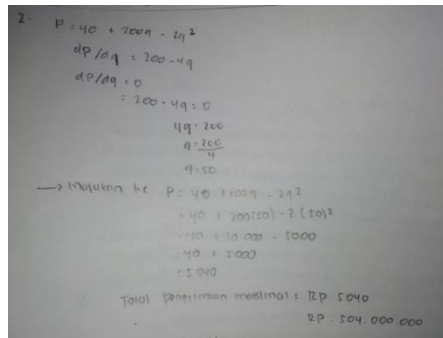 2.
P = 40 + 200q - 2q²
dP/dq = 200 - 4q
dP/dq = 0
= 200 - 4q = 0
4q = 200
q = 200/4
q = 50
→ Masukan ke P = 40 + 200q - 2q²
= 40 + 200(50) - 2(50)²
= 40 + 10.000 - 5000
= 40 + 5000
= 5040
Total penerimaan maksimal = Rp 5040
Rp. 504.000.000